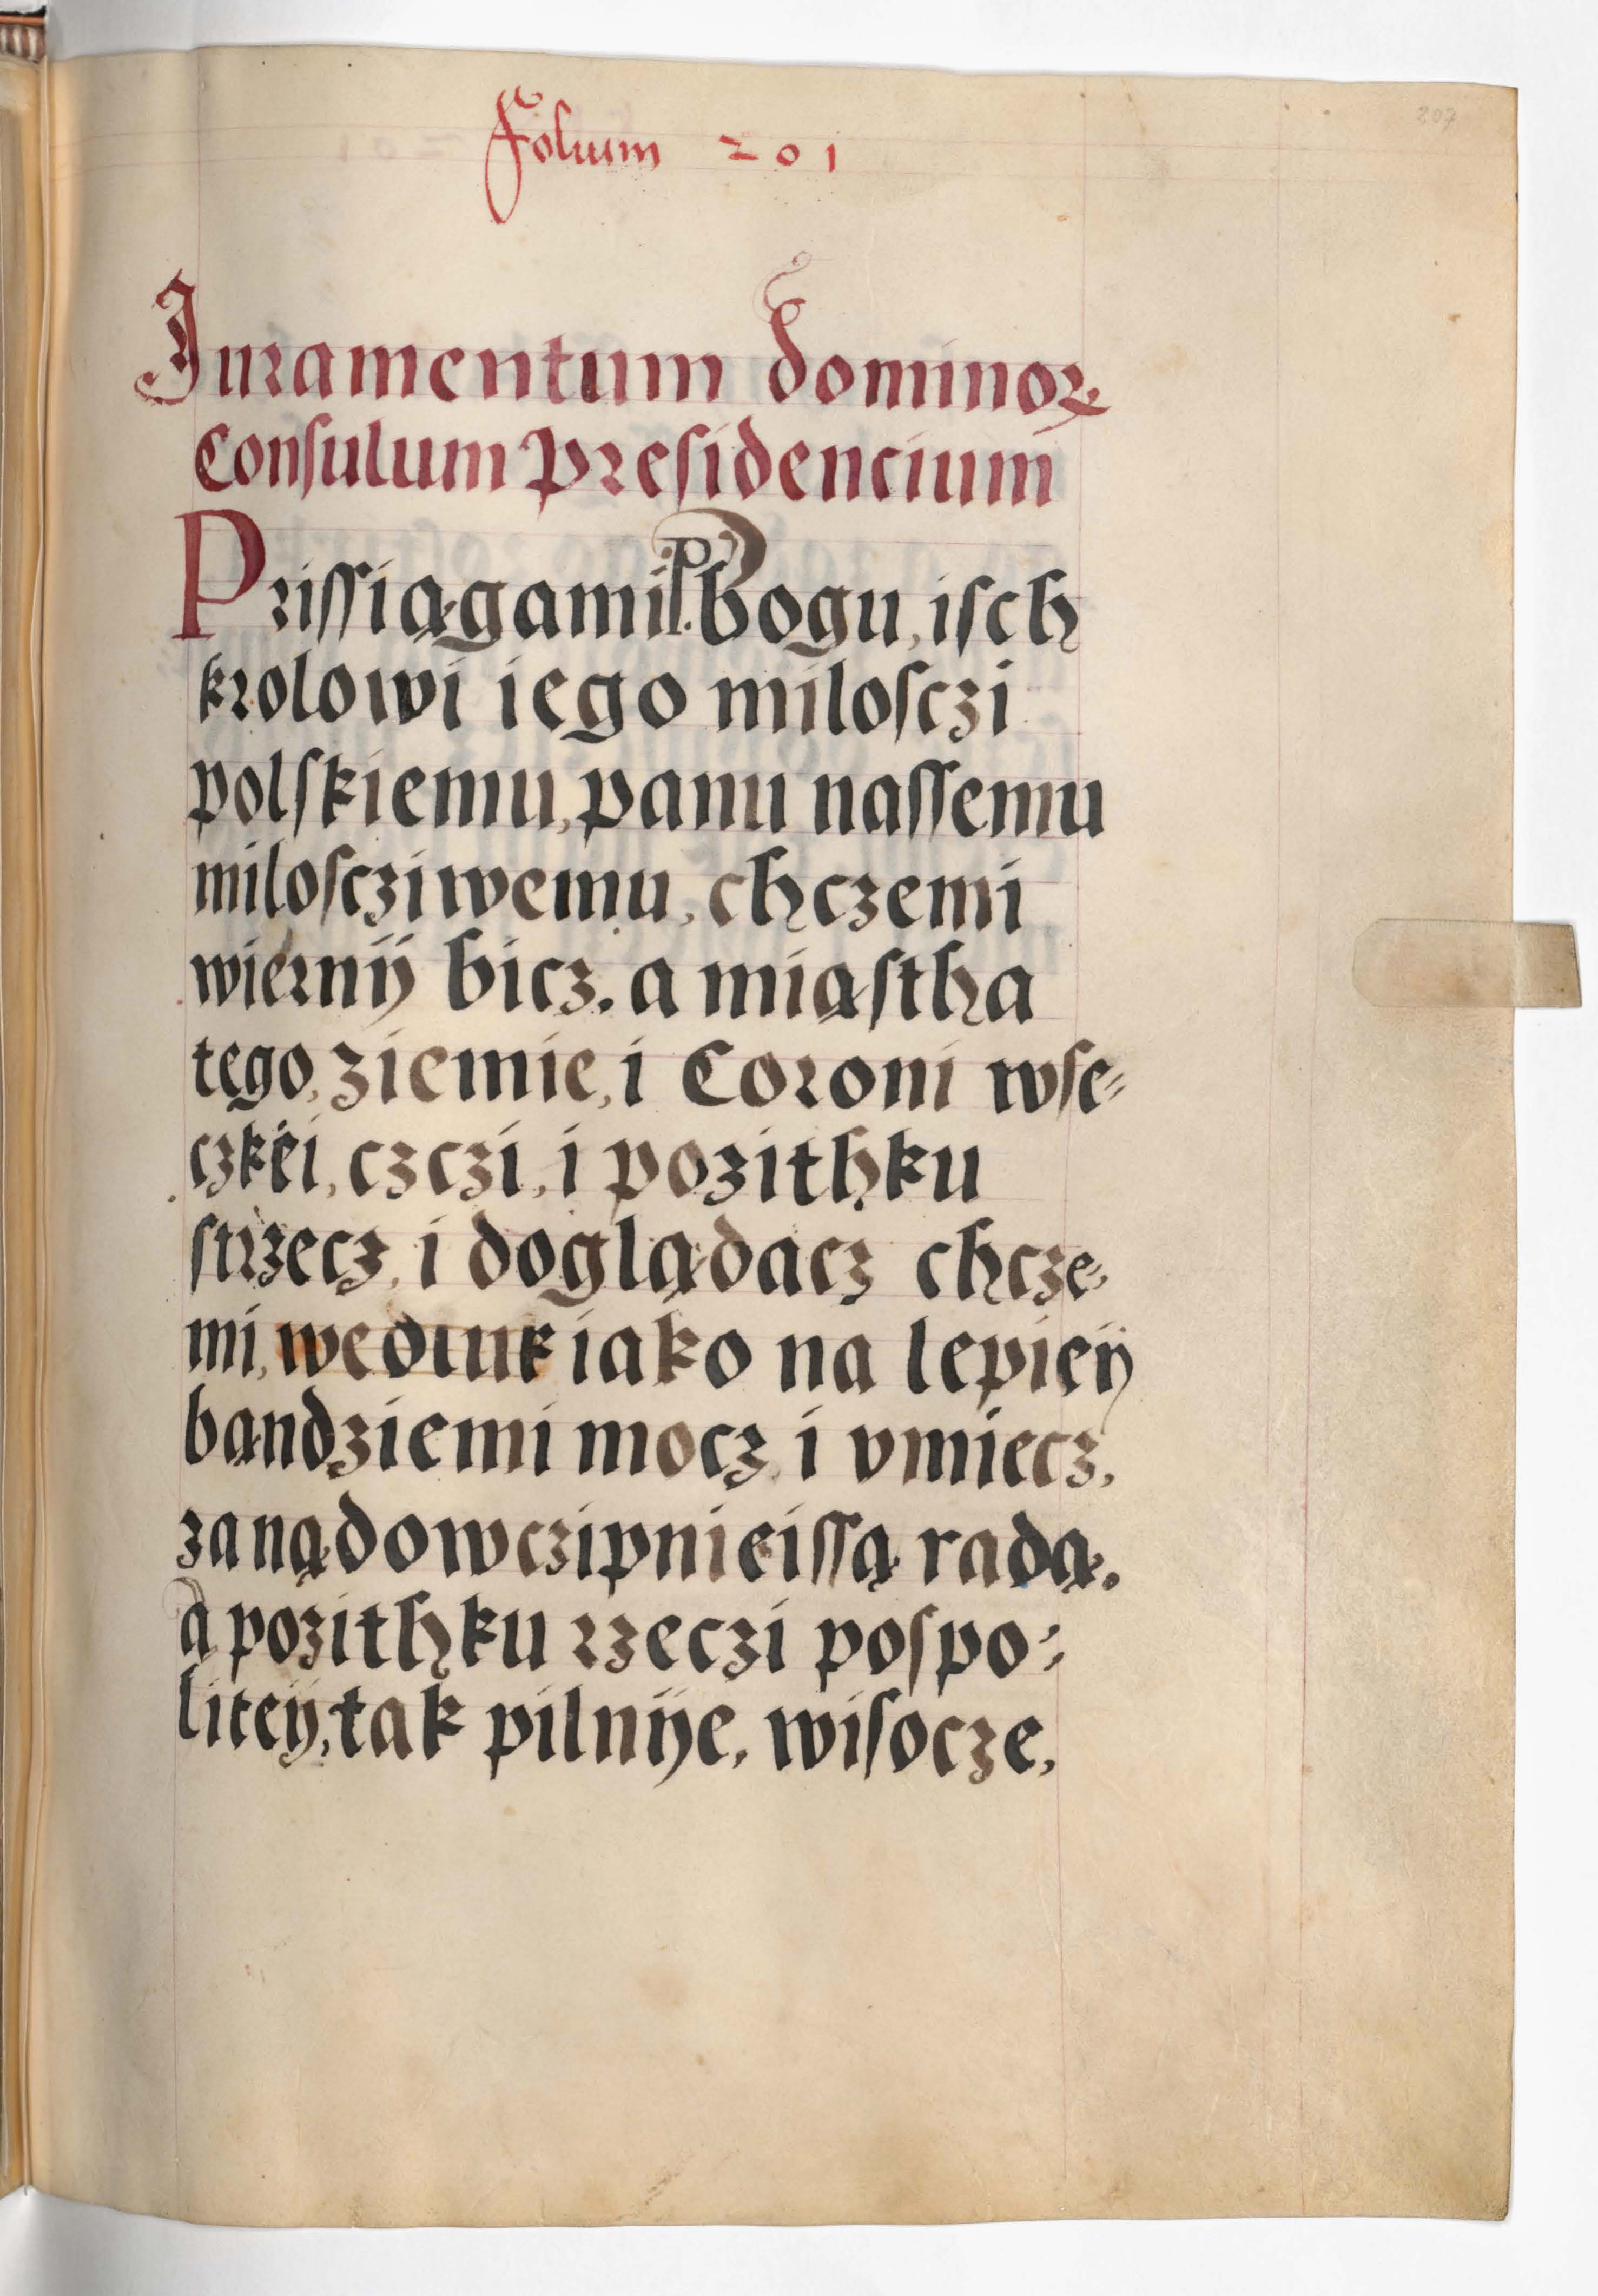 207
Folium 201
Juramentum dominoꝝ
Consulum presidencium
Prissiągami P. bogu, isch
krolowi iego milosczi
polskiemu, panu nassemu
milosczi wemu, chczemi
wiernÿ bicz. a miąstha
tego, ziemie, i Coroni wse⸗
czkėi, czczi, i pozithku
strzecz, i doglądacz chcze⸗
mi, wedluk iako na lepieÿ
bąndziemi mocz, i vmiecz,
za nądowczipnieissą radą.
a pozithku rzeczi pospo⸗
liteÿ, tak pilnÿe, wisocze,